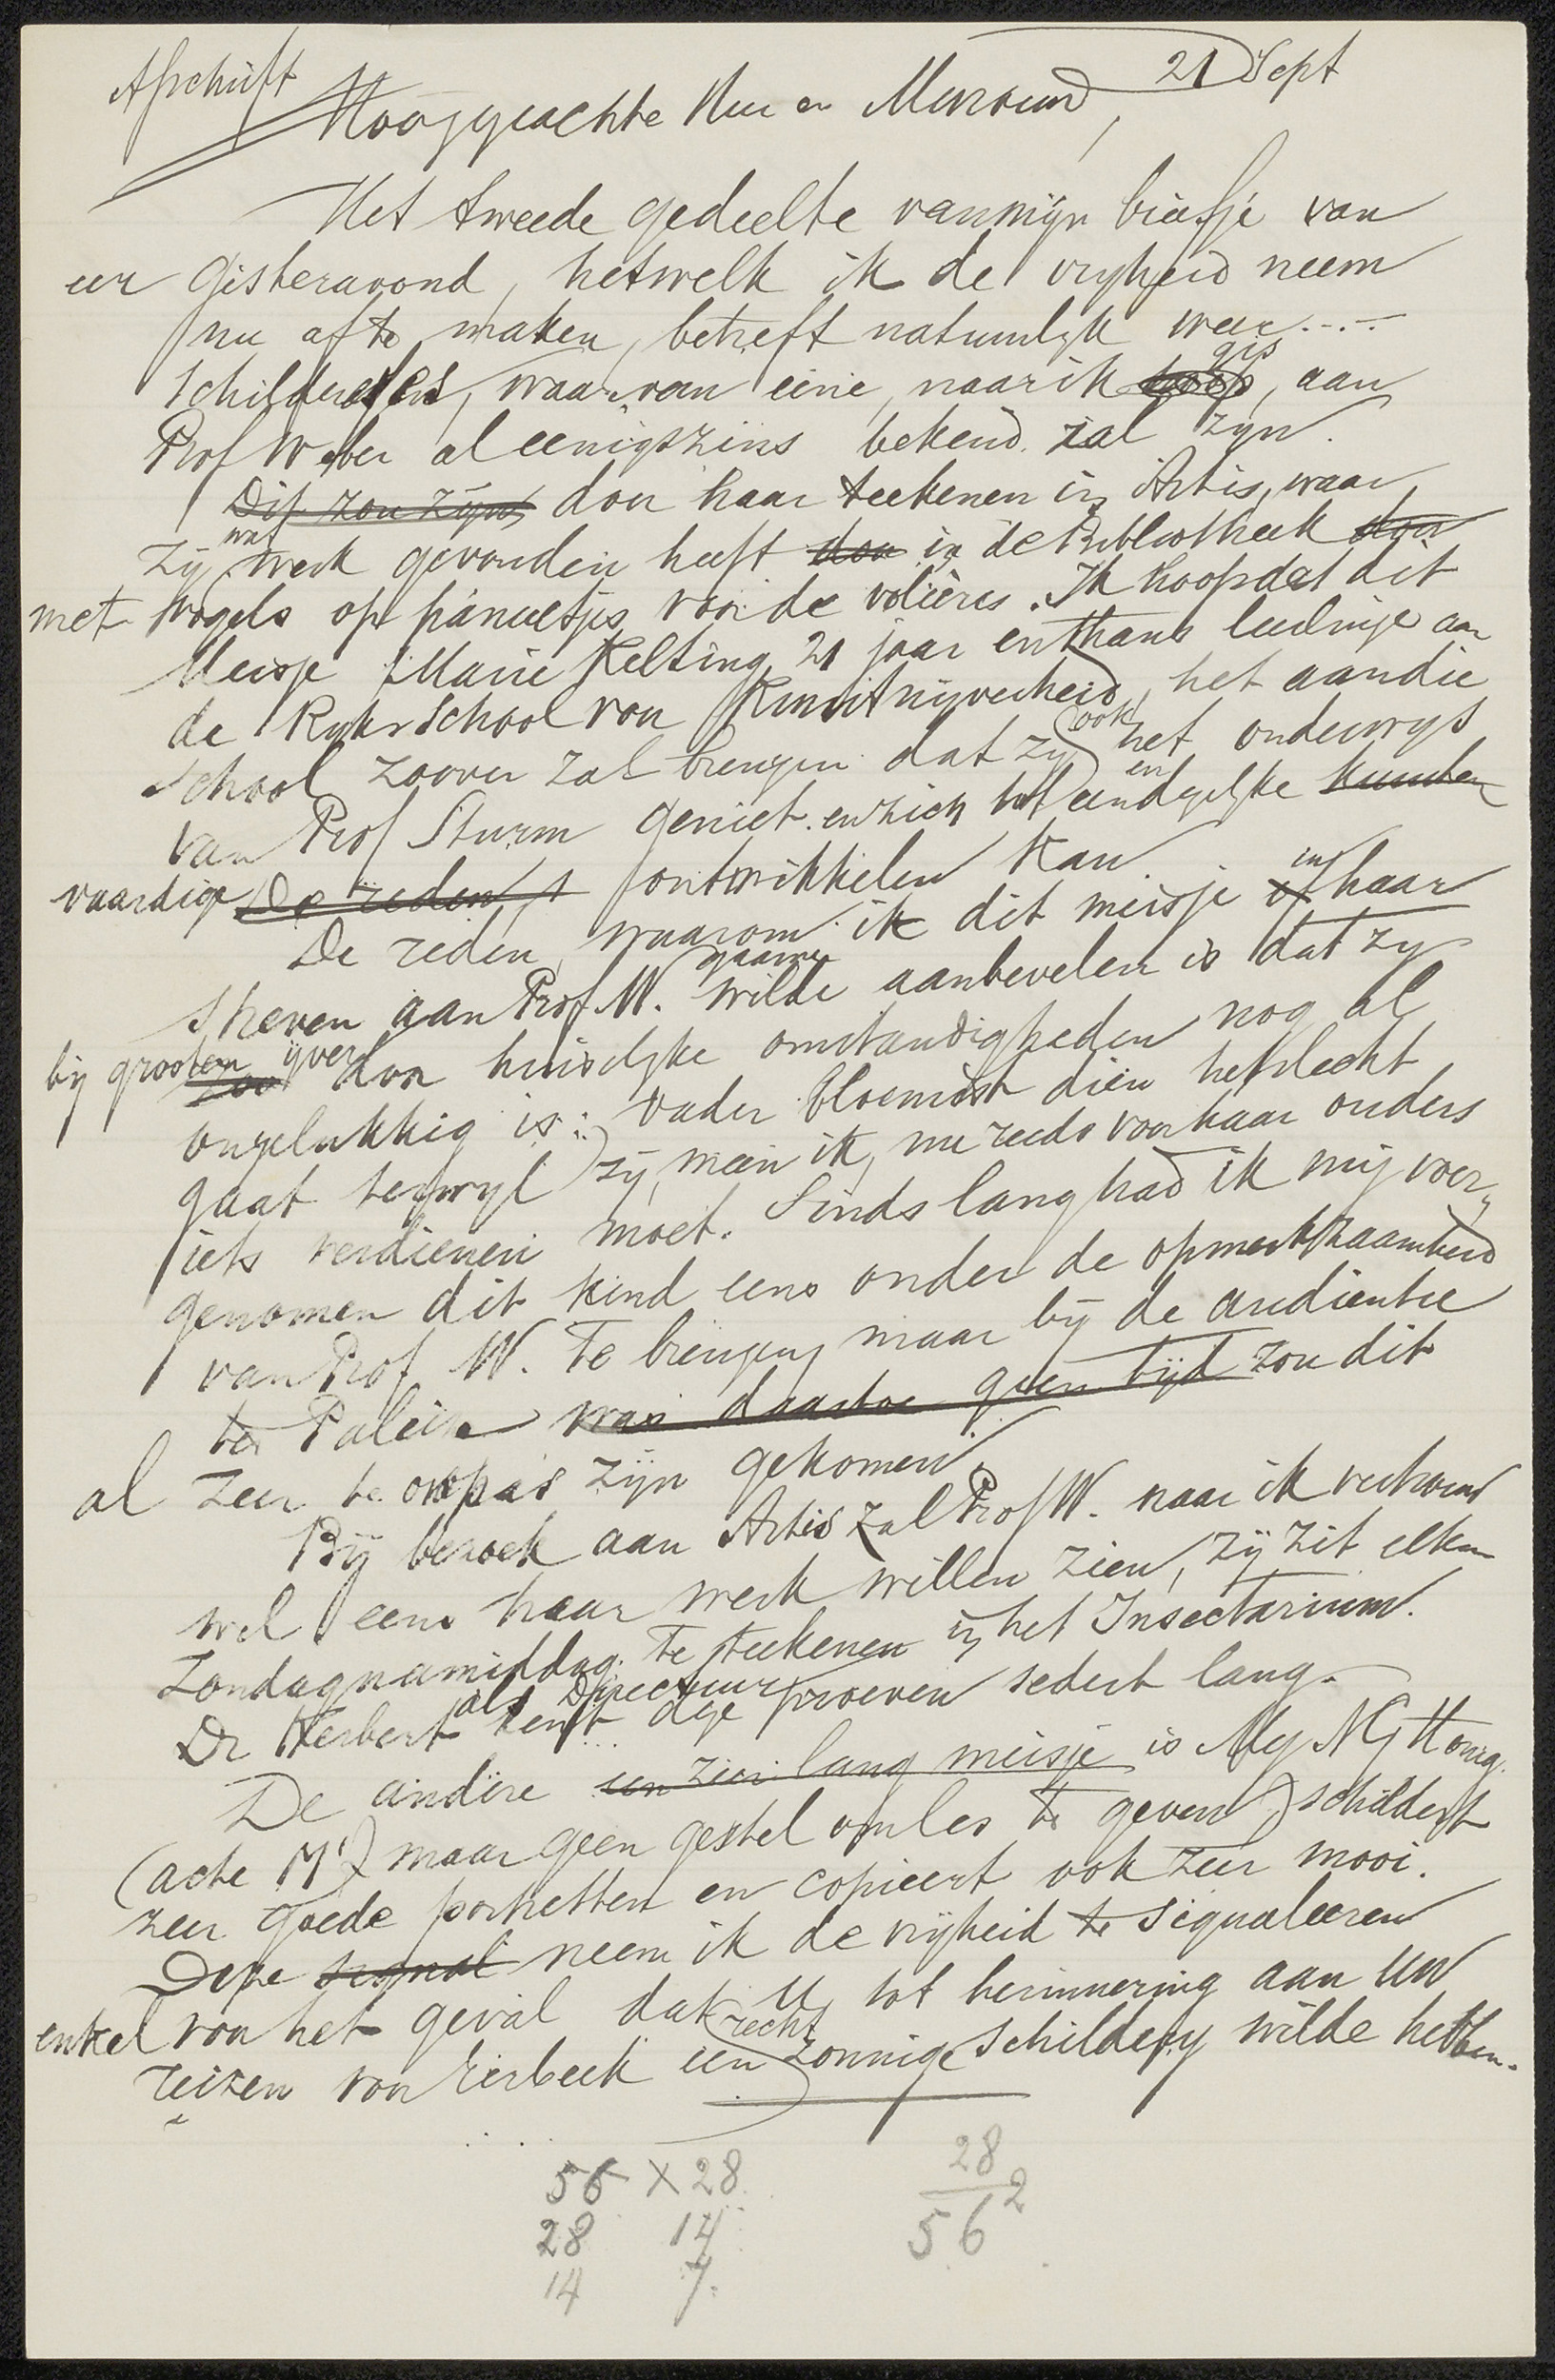 Afschrift
21 Sept
Hooggeachte Heer en Mevrouw,
Het tweede gedeelte van mijn briefje van
eer gisteravond, hetwelk ik de vrijheid neem
nu af te maken, betreft natuurlyk weer.....
schilderesjes, waarvan eene, naar ik gis, aan
Prof Weber al eenigszins bekend zal zyn.
Dit zou zyn door haar teekenen in Artis, waar
zij wat werk gevonden heeft door in de Bibliotheek door
met vogels op paneeltjes voor de volières. Ik hoop dat dit
Meisje Marie Kelting, 21 jaar en thans leerlinge aan
de Ryksschool voor Kunstnijverheid, het aan die
school zoover zal brengen dat zy ook het onderwys
van Prof Sturm geniet en zich tot een degelyke Kunste
vaardige De reden is ontwikkelen kan.
De reden, waarom ik dit meisje in haar
streven aan Prof. W. gaarne wilde aanbevelen is dat zy
bij grooten yver door huiselyke omstandigheden nog al
ongelukkig is: vader bloemist dien het slecht
gaat terwyl zij, meen ik, nu reeds voor haar ouders
iets verdienen moet. Sinds lang had ik mij voor"
genomen dit kind eens onder de opmerkzaamheid
van Prof W. te brengen, maar bij de audientie
ten Paleize was daartoe geen tijd zou dit
al zeer te onpas zijn gekomen.
Bij bezoek aan Artis zal Prof W. naar ik vertrouw
wel eens haar werk willen zien, zij zit elken
Zondagnamiddag te teekenen in het Insectarium.
Dr Kerbert als Directeur kent dize proeven sedert lang.
De andere een zeer lang meisje is Mej N G Honig.
(acte M1) maar geen gestel om les te geven) schildert
zeer goede portretten en copieert ook zeer mooi.
Deze signal neem ik de vrijheid te signaleeren
enkel voor het geval dat U, tot herinnering aan uw
reizen voor Eerbeek een recht zonnige schildery wilde hebben.
56 X 28 28
28 14 2
14 7. 56